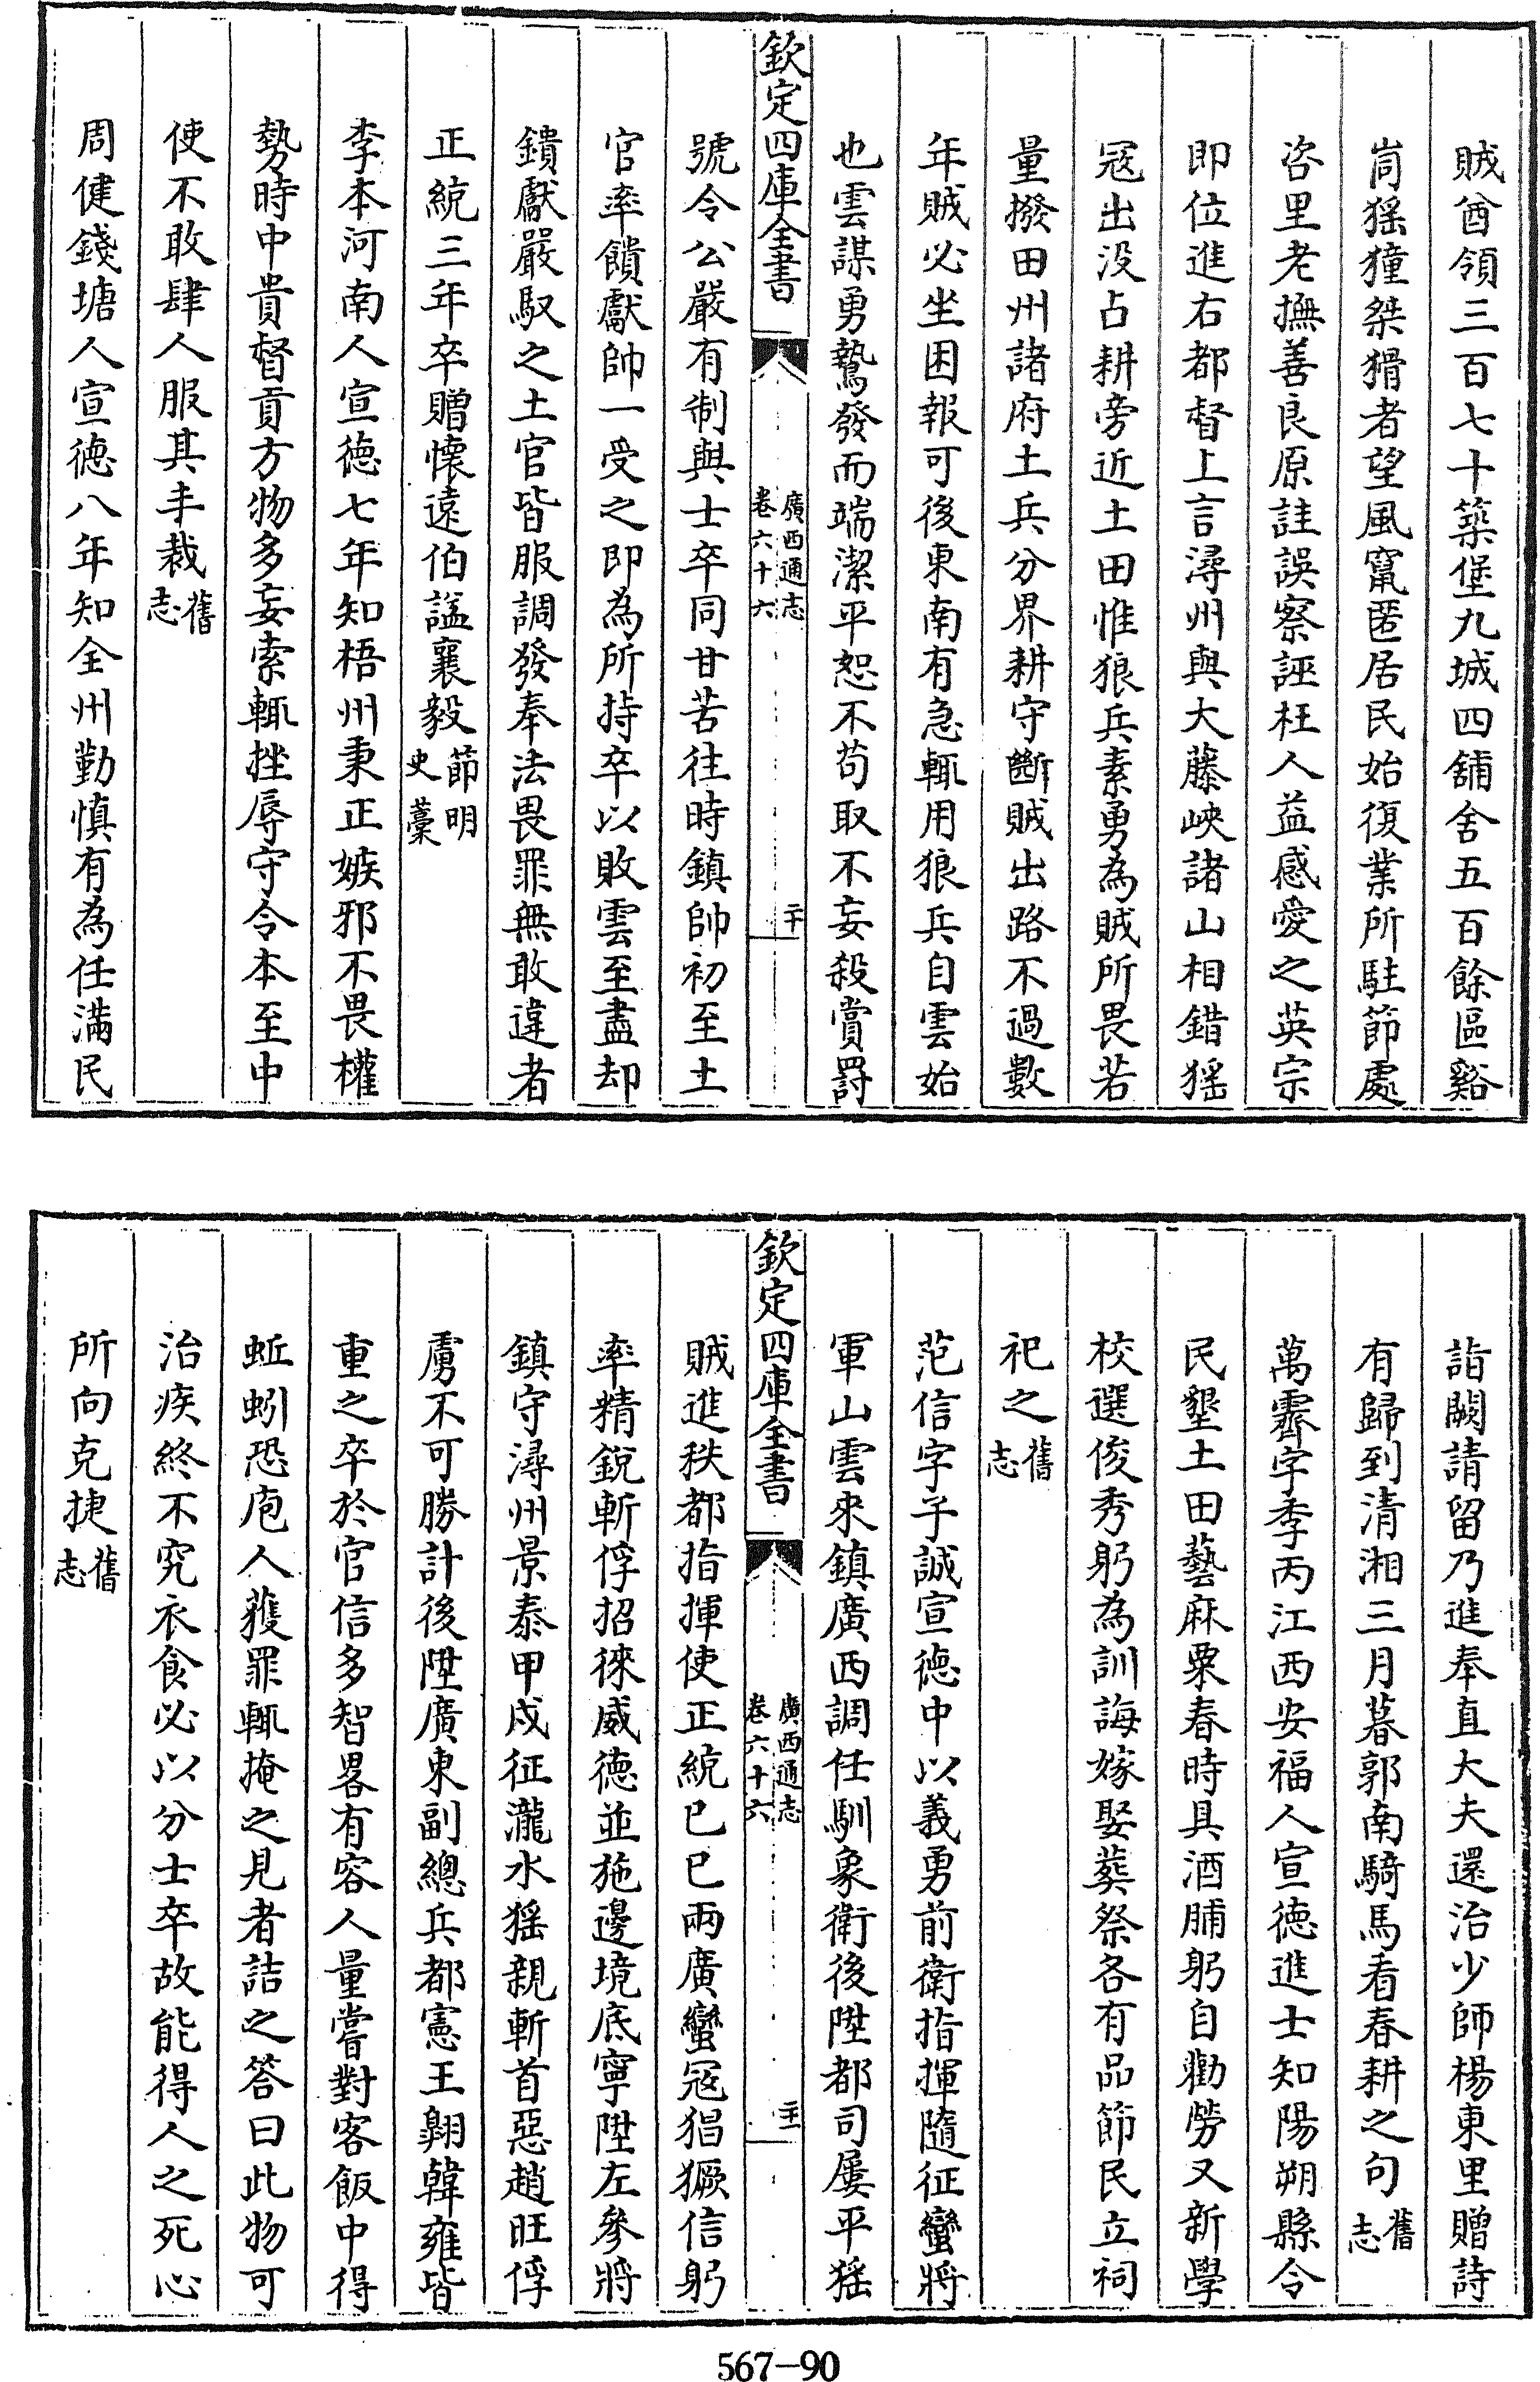 賊酋領三百七十築堡九城四舖舍五百餘區谿
峝猺獞桀猾者望風竄匿居民始復業所駐節處
咨里老撫善良原詿誤察誣枉人益感愛之英宗
即位進右都督上言潯州與大藤峽諸山相錯猺
冦出没占耕旁近土田惟狼兵素勇為賊所畏若
量撥田州諸府土兵分界耕守斷賊出路不過數
年賊必坐困報可後東南有急輒用狼兵自雲始
也雲謀勇鷙發而端潔平恕不苟取不妄殺賞罸
欽定四庫全書
廣西通志
卷六十六
二十
號令公嚴有制與士卒同甘苦往時鎮帥初至土
官率饋獻帥一受之即為所持卒以敗雲至盡却
鐀獻嚴馭之土官皆服調發奉法畏罪無敢違者
正統三年卒贈懷遠伯諡襄毅節明史藁
李本河南人宣德七年知梧州秉正嫉邪不畏權
勢時中貴督貢方物多妄索輒挫辱守令本至中
使不敢肆人服其丰裁舊志
周健錢塘人宣德八年知全州勤慎有為任滿民
詣闕請留乃進奉直大夫還治少師楊東里贈詩
有歸到清湘三月暮郭南騎馬看春耕之句舊志
萬霽字季丙江西安福人宣德進士知陽朔縣令
民墾土田藝麻粟春時具酒脯躬自勸勞又新學
校選俊秀躬為訓誨嫁娶葬祭各有品節民立祠
祀之舊志
范信字子誠宣德中以義勇前衛指揮隨征蠻將
軍山雲來鎮廣西調任馴象衛後陞都司屢平猺
欽定四庫全書
廣西通志
卷六十六
二十一
賊進秩都指揮使正統已巳兩廣蠻冦猖獗信躬
率精銳斬俘招徠威德並施邊境底寧陞左參將
鎮守潯州景泰甲戌征瀧水猺親斬首惡趙旺俘
虜不可勝計後陞廣東副總兵都憲王翺韓雍皆
重之卒於官信多智畧有容人量嘗對客飯中得
蚯蚓恐庖人獲罪輒掩之見者詰之答曰此物可
治疾終不究衣食必以分士卒故能得人之死心
所向克捷舊志
567-90